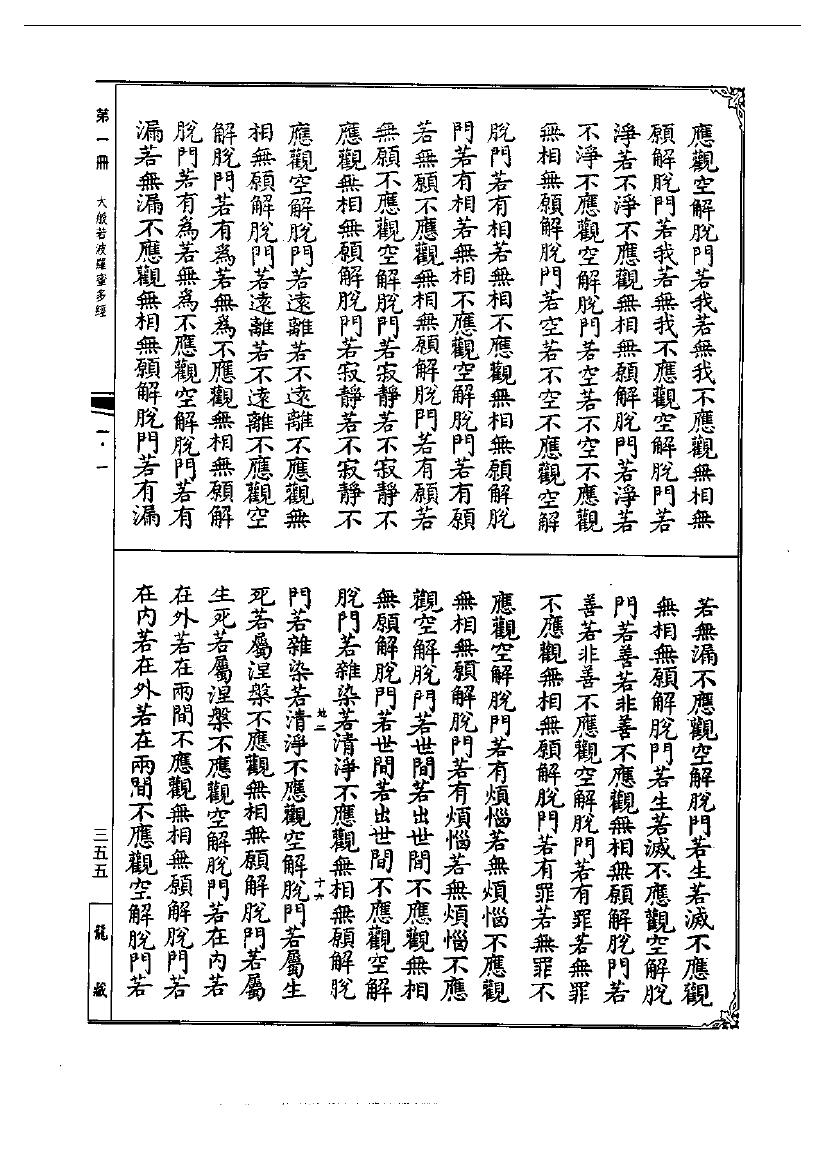 應觀空解脫門若我若無我不應觀無相無
願解脫門若我若無我不應觀空解脫門若
淨若不淨不應觀無相無願解脫門若淨若
不淨不應觀空解脫門若空若不空不應觀
無相無願解脫門若空若不空不應觀空解
脫門若有相若無相不應觀無相無願解脫
門若有相若無相不應觀空解脫門若有願
若無願不應觀無相無願解脫門若有願若
無願不應觀空解脫門若寂靜若不寂靜不
應觀無相無願解脫門若寂靜若不寂靜不
應觀空解脫門若遠離若不遠離不應觀無
相無願解脫門若遠離若不遠離不應觀空
解脫門若有為若無為不應觀無相無願解
脫門若有為若無為不應觀空解脫門若有
漏若無漏不應觀無相無願解脫門若有漏
若無漏不應觀空解脫門若生若滅不應觀
無相無願解脫門若生若滅不應觀空解脫
門若善若非善不應觀無相無願解脫門若
善若非善不應觀空解脫門若有罪若無罪
不應觀無相無願解脫門若有罪若無罪不
應觀空解脫門若有煩惱若無煩惱不應觀
無相無願解脫門若有煩惱若無煩惱不應
觀空解脫門若世間若出世間不應觀無相
無願解脫門若世間若出世間不應觀空解
脫門若雜染若清淨不應觀無相無願解脫
地二
十六
門若雜染若清淨不應觀空解脫門若屬生
死若屬涅槃不應觀無相無願解脫門若屬
生死若屬涅槃不應觀空解脫門若在內若
在外若在兩間不應觀無相無願解脫門若
在內若在外若在兩間不應觀空解脫門若
第一冊 大般若波羅蜜多經
一・一
三五五
龍藏